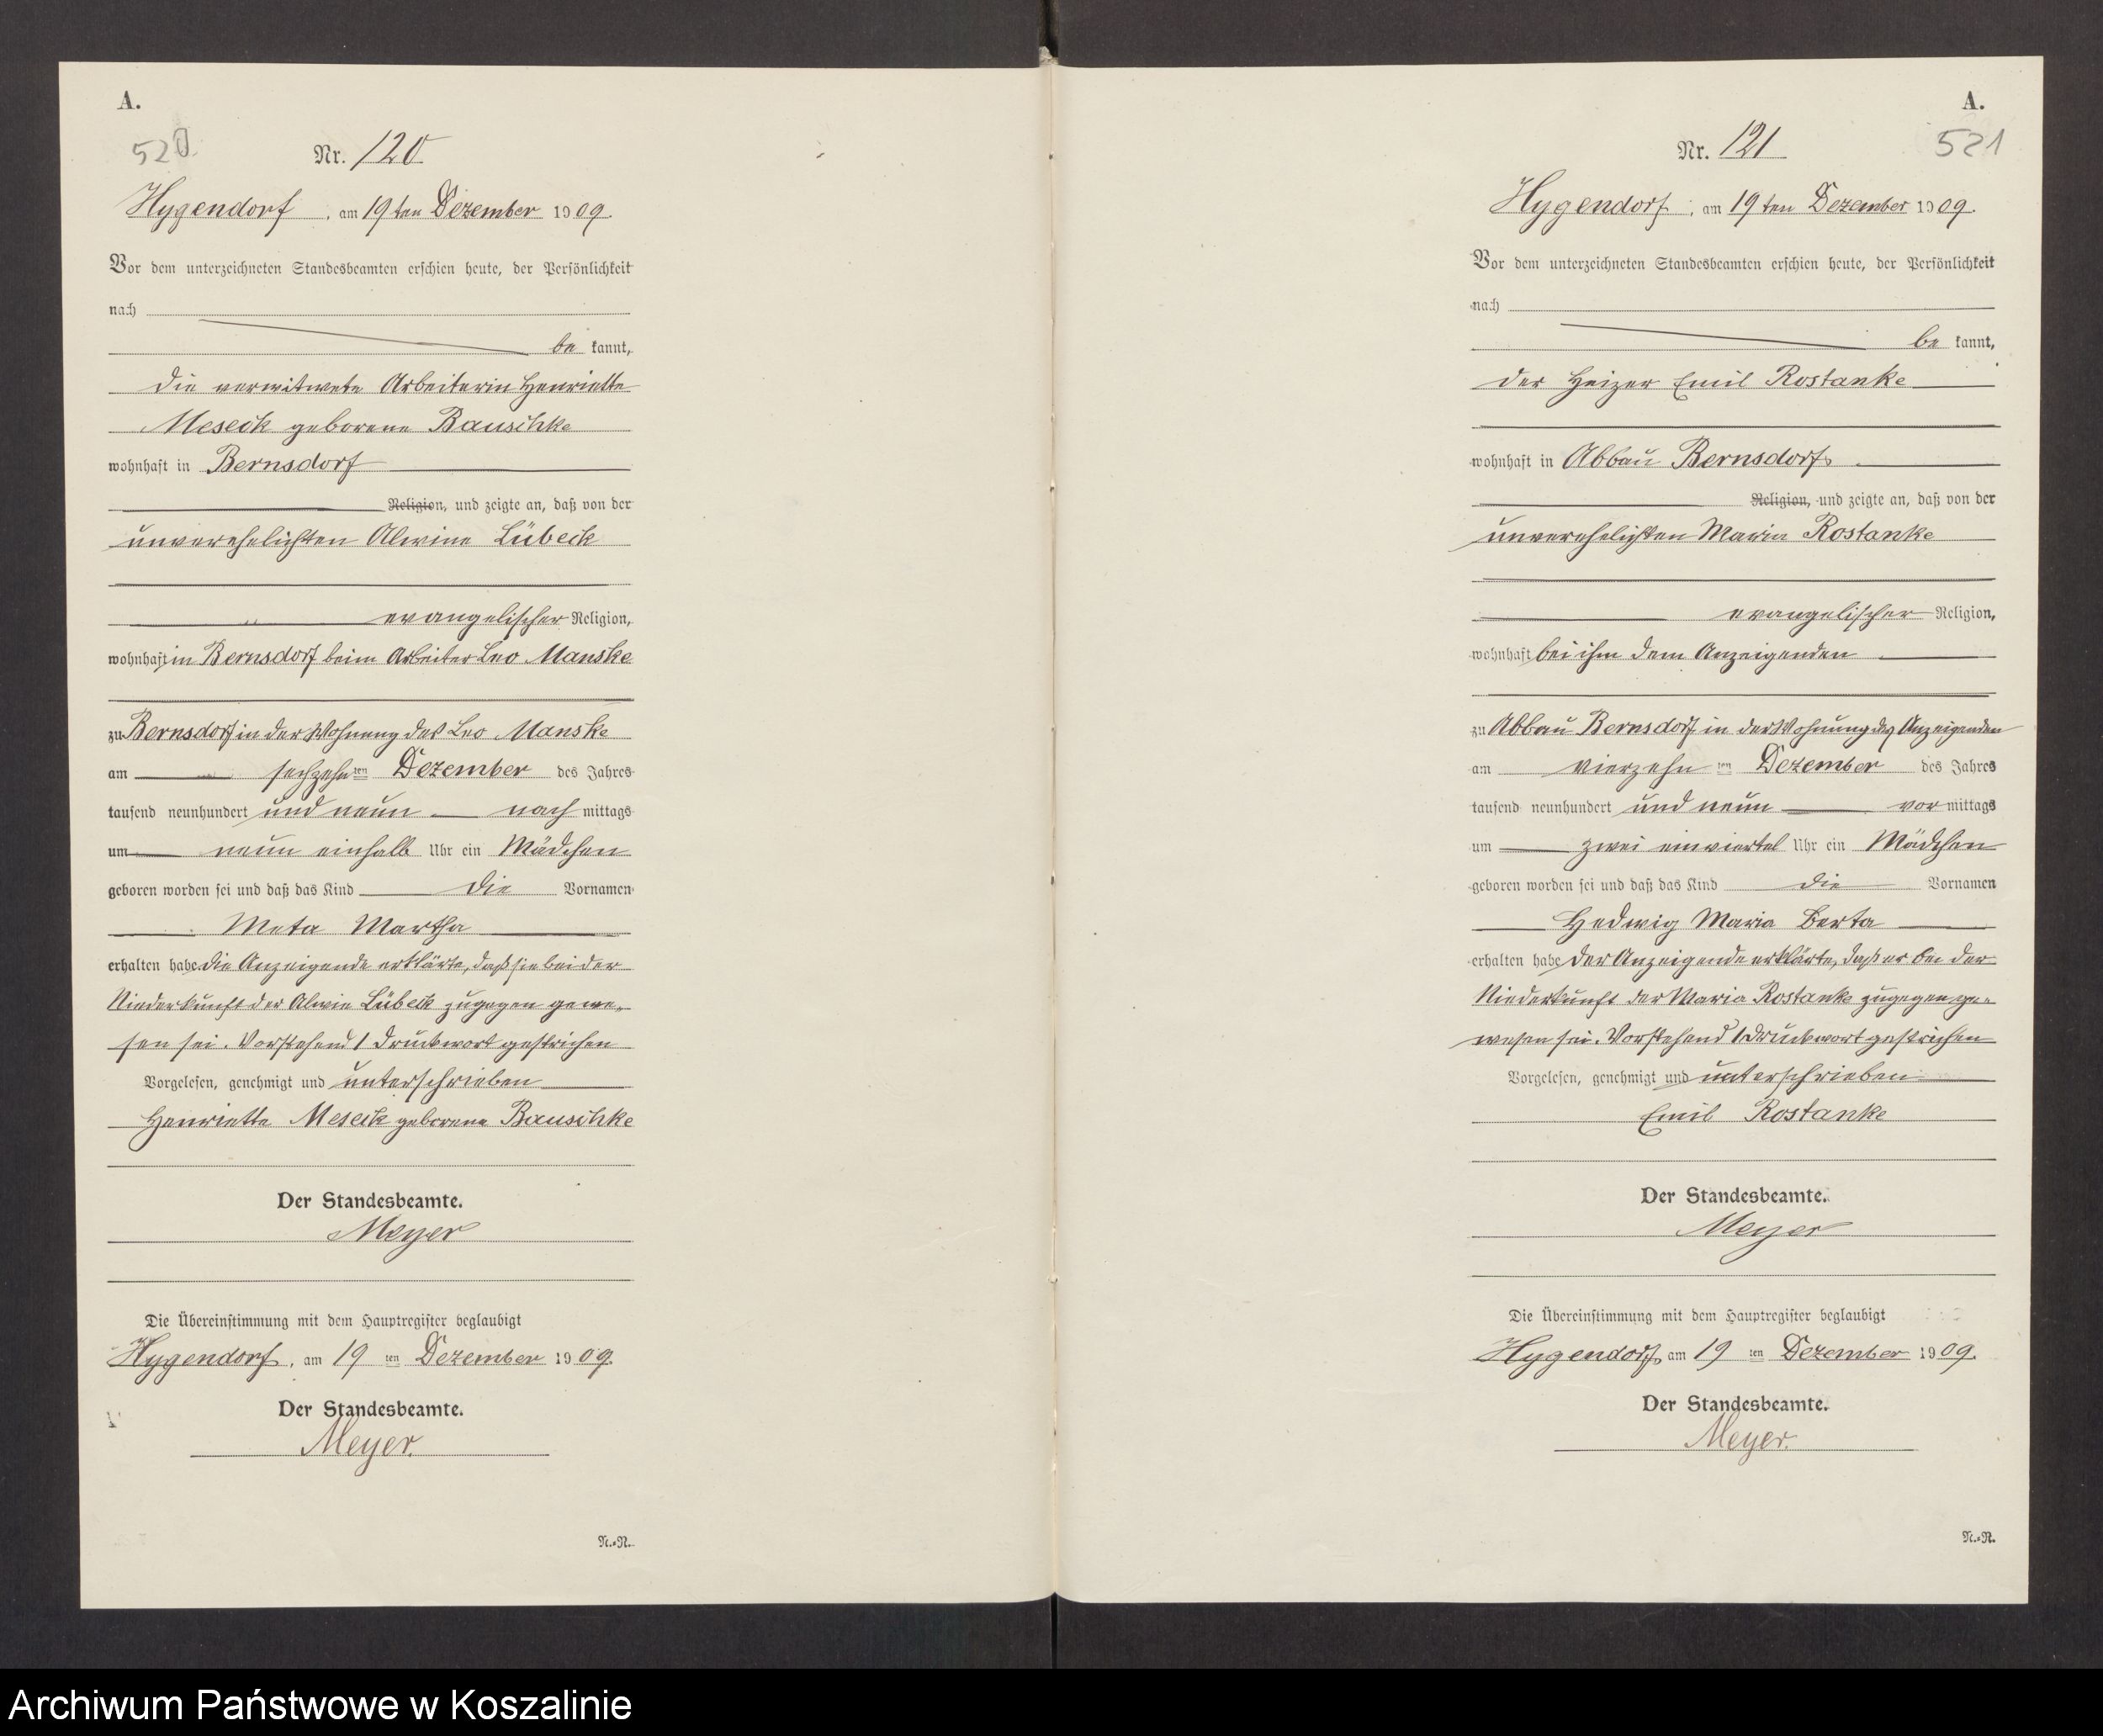 A.
520
Nr. 120
Hygendorf, am 19ten Dezember 1909.
Vor dem unterzeichneten Standesbeamten erschien heute, der Persönlichkeit
nach
be kannt,
die verwitwete Arbeiterin Henriette
Meseck geborene Bauschke
wohnhaft in Bernsdorf
Religion, und zeigte an, daß von der
unverehelichten Alwine Lübeck
evangelischer Religion,
wohnhaft in Bernsdorf beim Arbeiter Leo Manske
zu Bernsdorf in der Wohnung des Leo Manske
am sechzehn ten Dezember des Jahres
tausend neunhundert und neun nach mittags
um neun einhalb Uhr ein Mädchen
geboren worden sei und daß das Kind die Vornamen
Meta Martha
erhalten habe. Die Anzeigende erklärte, daß sie bei der
Niederkunft der Alwin Lübeck zugegen gewe-
sen sei. Vorstehend 1 Druckwort gestrichen
Vorgelesen, genehmigt und unterschrieben
Henriette Meseck geborene Bauschke
Der Standesbeamte.
Meyer
Die Übereinstimmung mit dem Hauptregister beglaubigt
Hygendorf, am 19 ten Dezember 1909.
Der Standesbeamte.
Meyer.
N.=R.
A.
521
Nr. 121
Hygendorf, am 19ten Dezember 1909.
Vor dem unterzeichneten Standesbeamten erschien heute, der Persönlichkeit
nach
be kannt,
der Heizer Emil Rostanke
wohnhaft in Abbau Bernsdorf
Religion, und zeigte an, daß von der
unverehelichten Maria Rostanke
evangelischer Religion,
wohnhaft bei ihm dem Anzeigenden
zu Abbau Bernsdorf in der Wohnung des Anzeigenden
am vierzehn ten Dezember des Jahres
tausend neunhundert und neun vor mittags
um zwei einviertel Uhr ein Mädchen
geboren worden sei und daß das Kind die Vornamen
Hedwig Maria Berta
erhalten habe Der Anzeigende erklärte, daß er bei der
Niederkunft der Maria Rostanke zugegen ge-
wesen sei. Vorstehend 1 Druckwort gestrichen
Vorgelesen, genehmigt und unterschrieben
Emil Rostanke
Der Standesbeamte.
Meyer
Die Übereinstimmung mit dem Hauptregister beglaubigt
Hygendorf, am 19 ten Dezember 1909.
Der Standesbeamte.
Meyer.
N.=R.
Archiwum Państwowe w Koszalinie